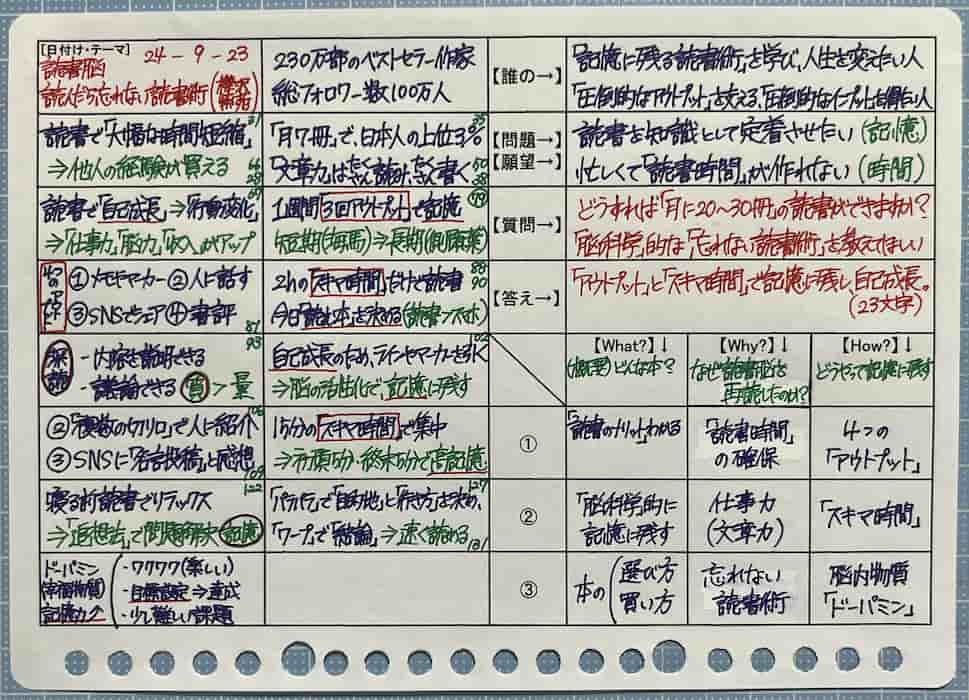 [日付け・テーマ] 24-9-23
読書脳
読んだら忘れない読書術(樺沢紫苑)
230万部のベストセラー作家
総フォロワー数100万人
【誰の→】
「記憶に残る読書術」を学び、人生を変えたい人
「圧倒的なアウトプット」を支える「圧倒的なインプット」を得たい人
読書で「大幅な時間短縮」31
⇒他人の経験が買える 66
「月7冊」で、日本人の上位3% 35
「文章力」はたくさん読み、たくさん書く 50
【問題→】
【願望→】
読書を知識として定着させたい(記憶)
忙しくて「読書時間」が作れない(時間)
読書で「自己成長」⇒「行動変化」
⇒「仕事力」「脳力」「収入」がアップ
1週間「3回アウトプット」で記憶
短期(海馬)⇒長期(側頭葉)
【質問→】
どうすれば「月に20〜30冊」の読書ができますか?
「脳科学」的な「忘れない読書術」を教えてほしい
4つのアウトプット
①メモやマーカー②人に話す
③SNSでシェア④書評 81
2hの「スキマ時間」だけで読書 88
今日「読む本」を決める(読書>スホ) 90
【答え→】
「アウトプット」と「スキマ時間」で記憶に残し、自己成長。
(23文字)
深読 -内容を説明できる 93
-議論できる 質>量
自己成長のため、ラインやマーカーを引く 102
⇒脳の活性化で、記憶に残す
【What?】↓
(概要)どんな本?
【Why?】↓
なぜ読書脳を
再読したのか?
【How?】↓
どうやって記憶に残す
②「複数の切り口」で人に紹介
③SNSに「名言投稿」と感想 109
15分の「スキマ時間」で集中
⇒初頭5分・終末5分で高記憶
①
「読書のメリット」わかる
「読書時間」
の確保
4つの
「アウトプット」
寝る前読書でリラックス 122
⇒「追想法」で問題解決 記憶
「パラパラ」で「目的地」と「作り方」を決め、 127
「ワープ」で「結論」⇒速く読める 131
②
「脳科学」的に
記憶に残す
仕事力
(文章力)
「スキマ時間」
ドーパミン
(幸福物質)
記憶力↑
・ワクワク(楽しい)
・目標設定⇒達成
・少し難しい課題
③
本の(選び方
買い方
忘れない
読書術
脳内物質
「ドーパミン」